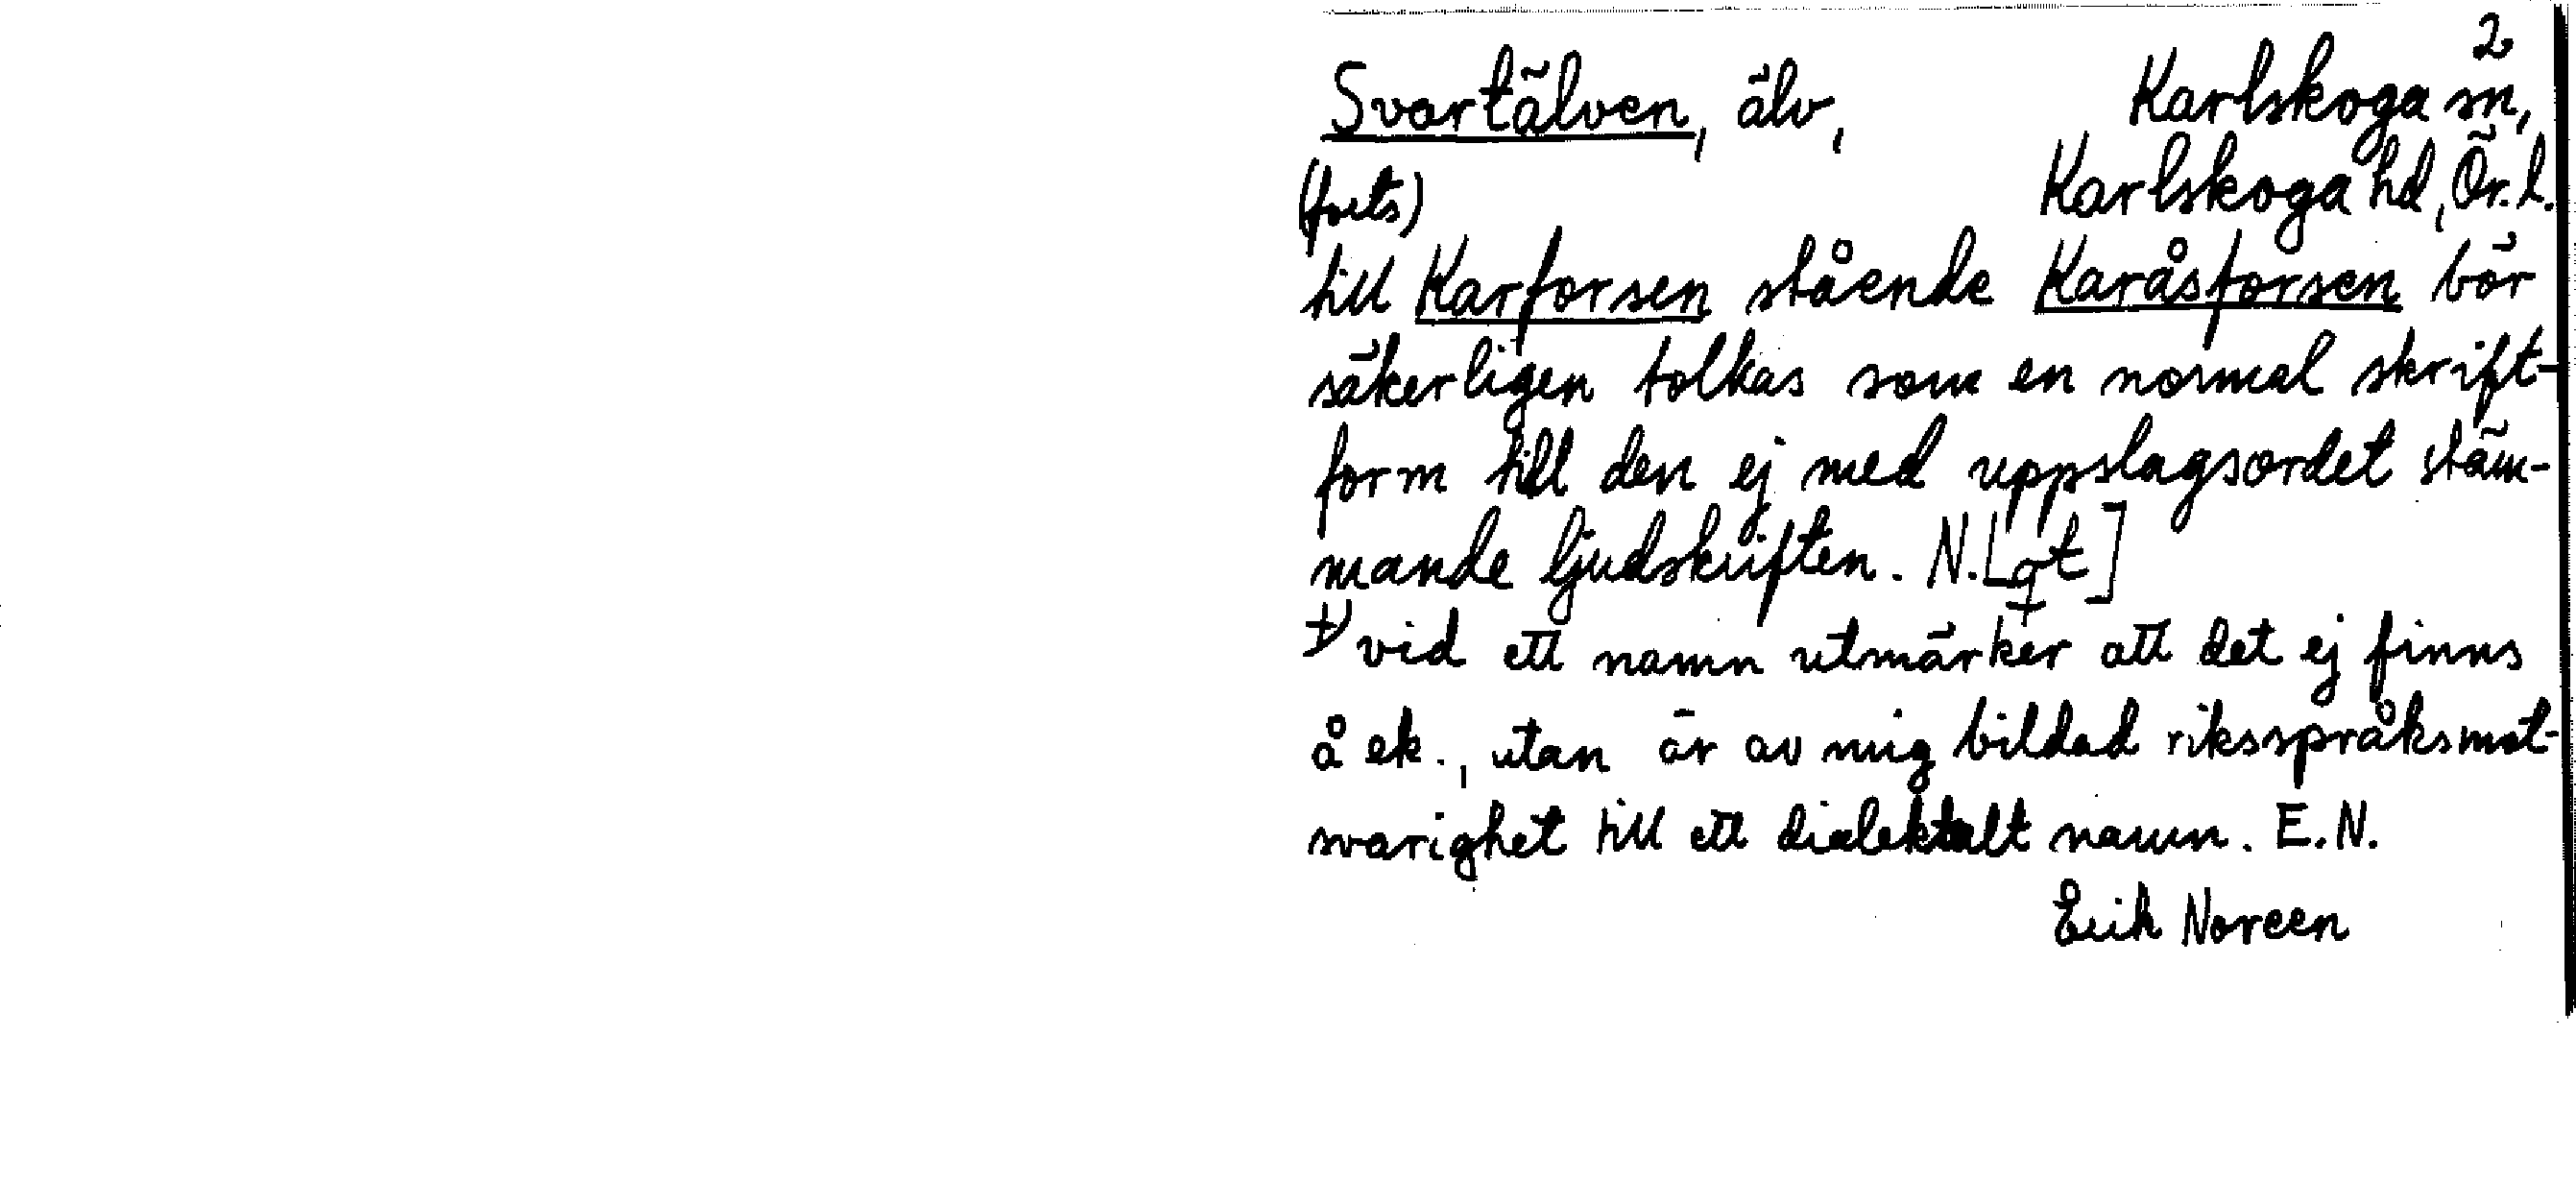 2
Svartälven, älv, Karlskoga sn,
(forts) Karlskoga hd, Ör. l.
till Karforsen stående Karåsforsen bör
säkerligen tolkas som en normal skrift-
form till den ej med uppslagsordet stäm-
mande ljudskriften. N. Lgt]
+) vid ett namn utmärker att det ej finns
å ek., utan är av mig bildad riksspråksmot-
svarighet till ett dialektalt namn. E.N.
Erik Noreen